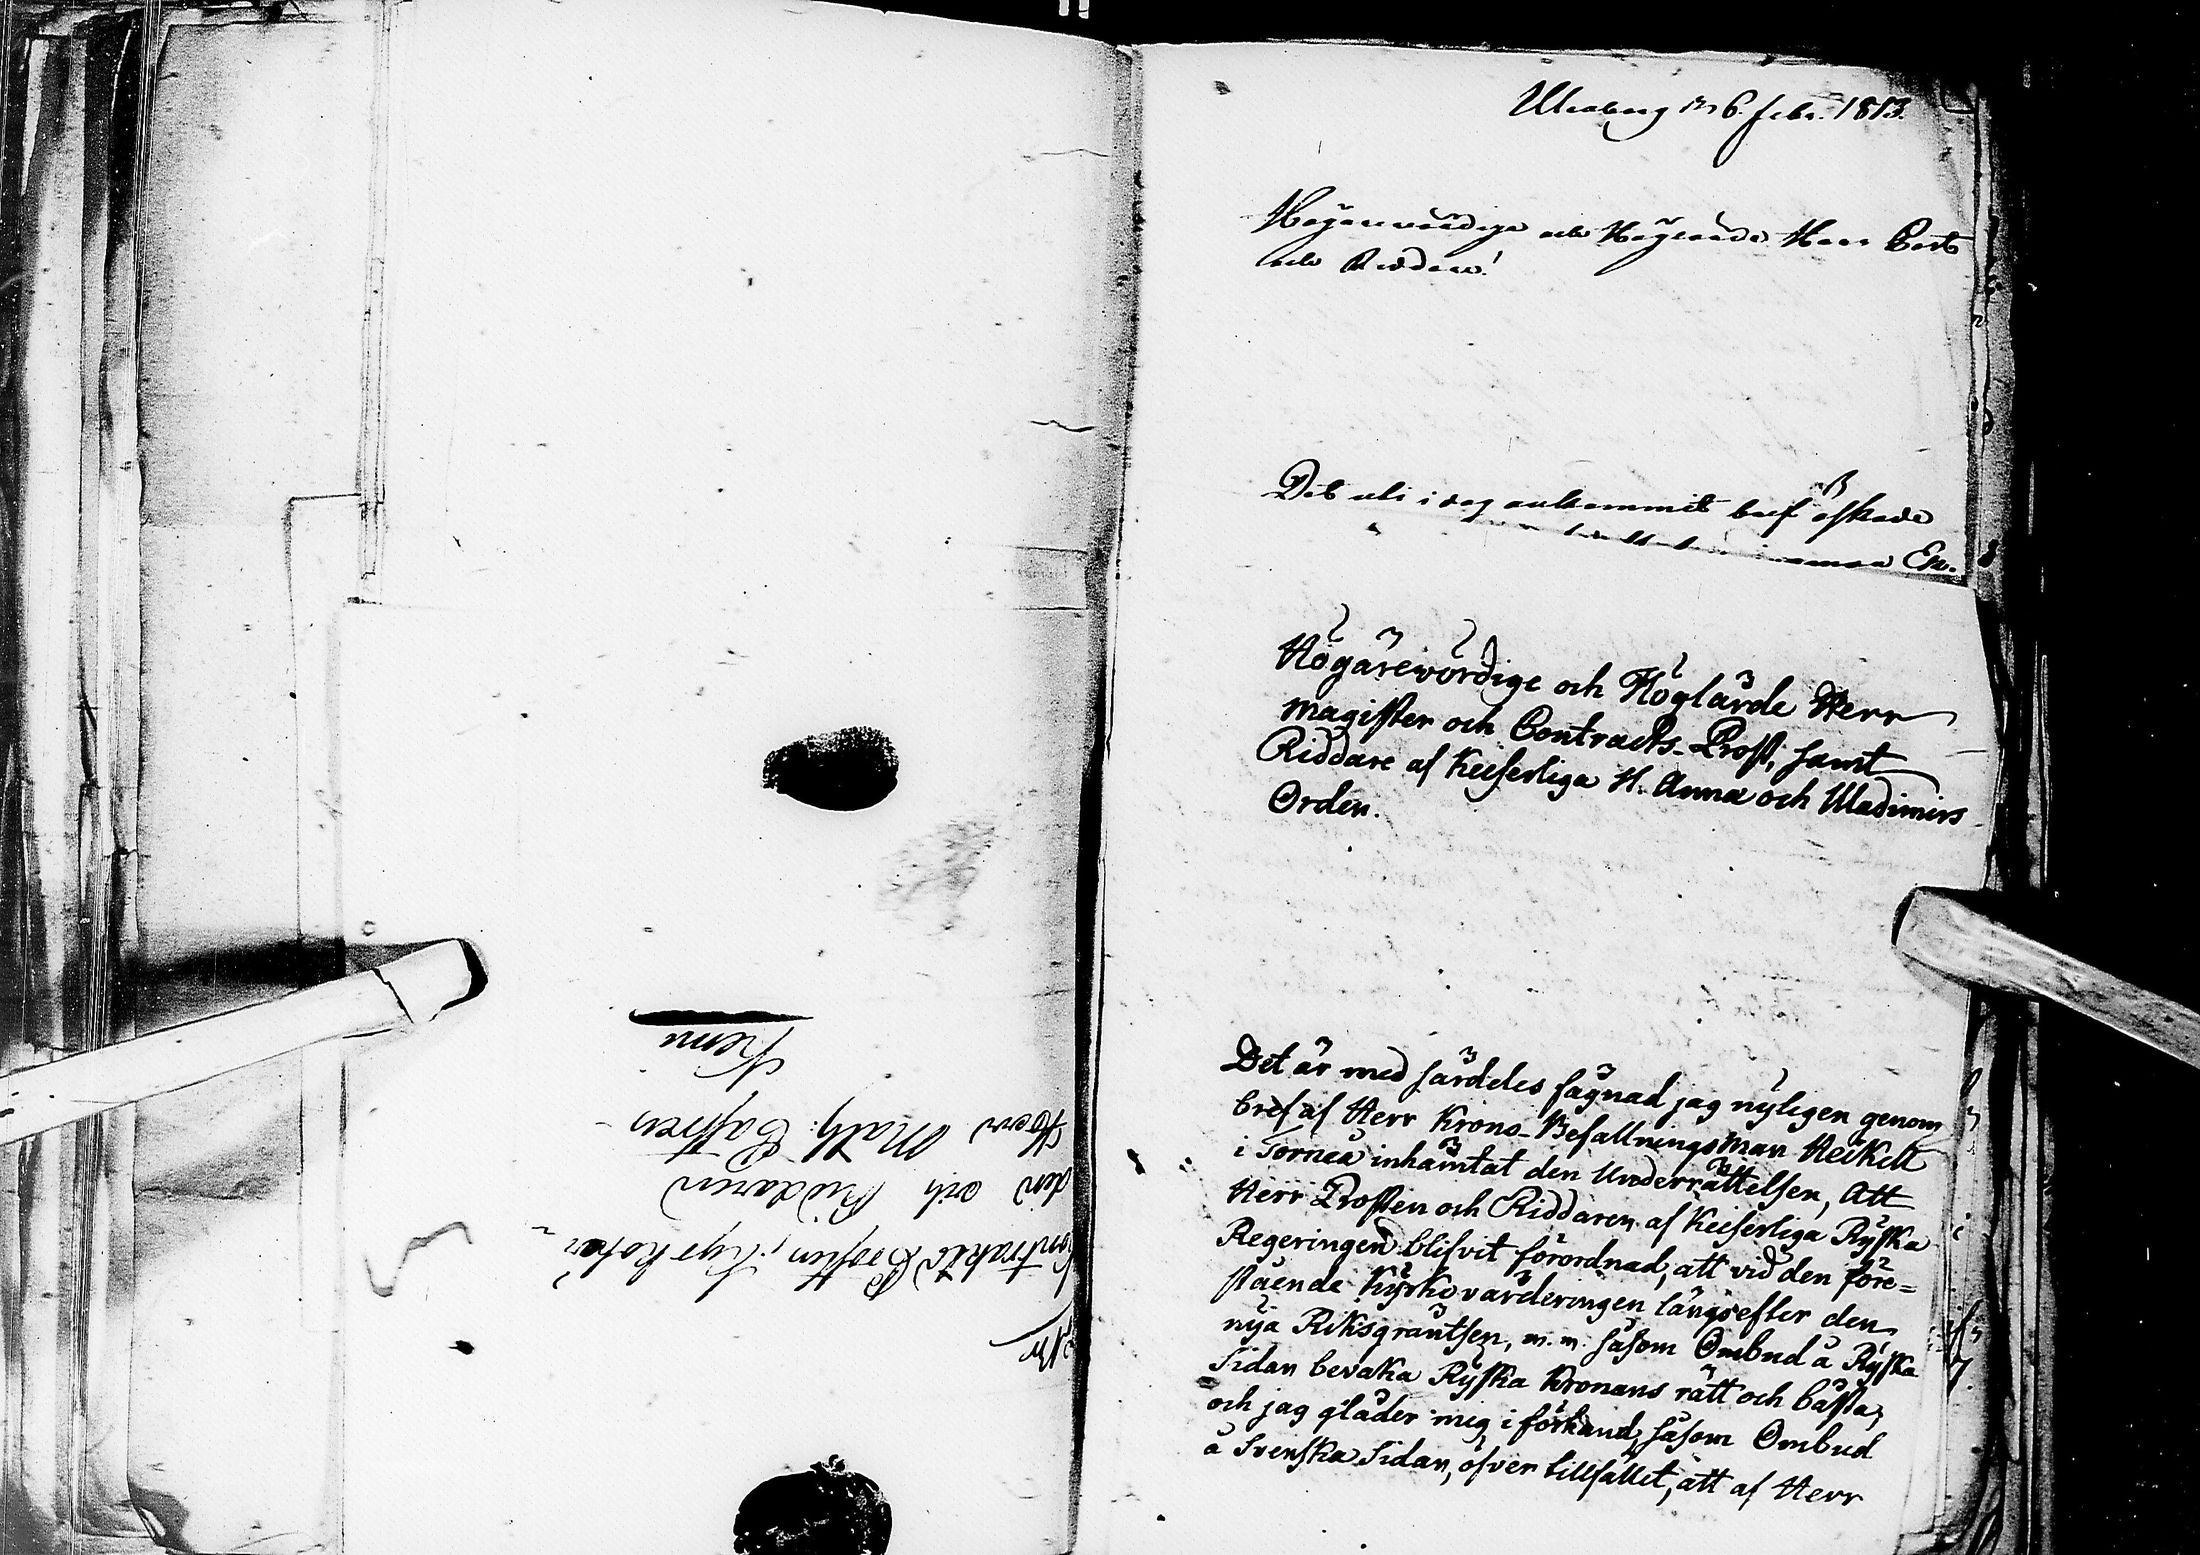 Kontrakts Prosten, Kyrkoher-
den och Riddaren
Herr Math: Castren
Kemi
Uleaborg den 6. febr. 1813.
Högärevördige och Höglärde Herr Prost
och Riddare!
Det uti i dag ankommit bref äskade
Ew.
Högärevördige och Höglärde Herr
Magister och Contracts-Prost, samt
Riddare af Keiserliga St. Annæ och Wladimirs
Orden.
Det är med särdeles fägnad jag nyligen genom
bref af Herr Krono-Befallningsman
i Torneå inhämtat den Underrättelsen, Att
Herr Prosten och Riddaren af Keiserliga Ryska
Regeringen blifvit förordnad, att vid den före=
stående Kyrkovärderingen längsefter den
nya Riksgräntsen, m.m. såsom Ombud å Ryska
Sidan bevaka Ryska Kronans rätt och bästa,
och jag gläder mig i förhand, såsom Ombud
å Svenska Sidan, öfver tillfället, att af Herr